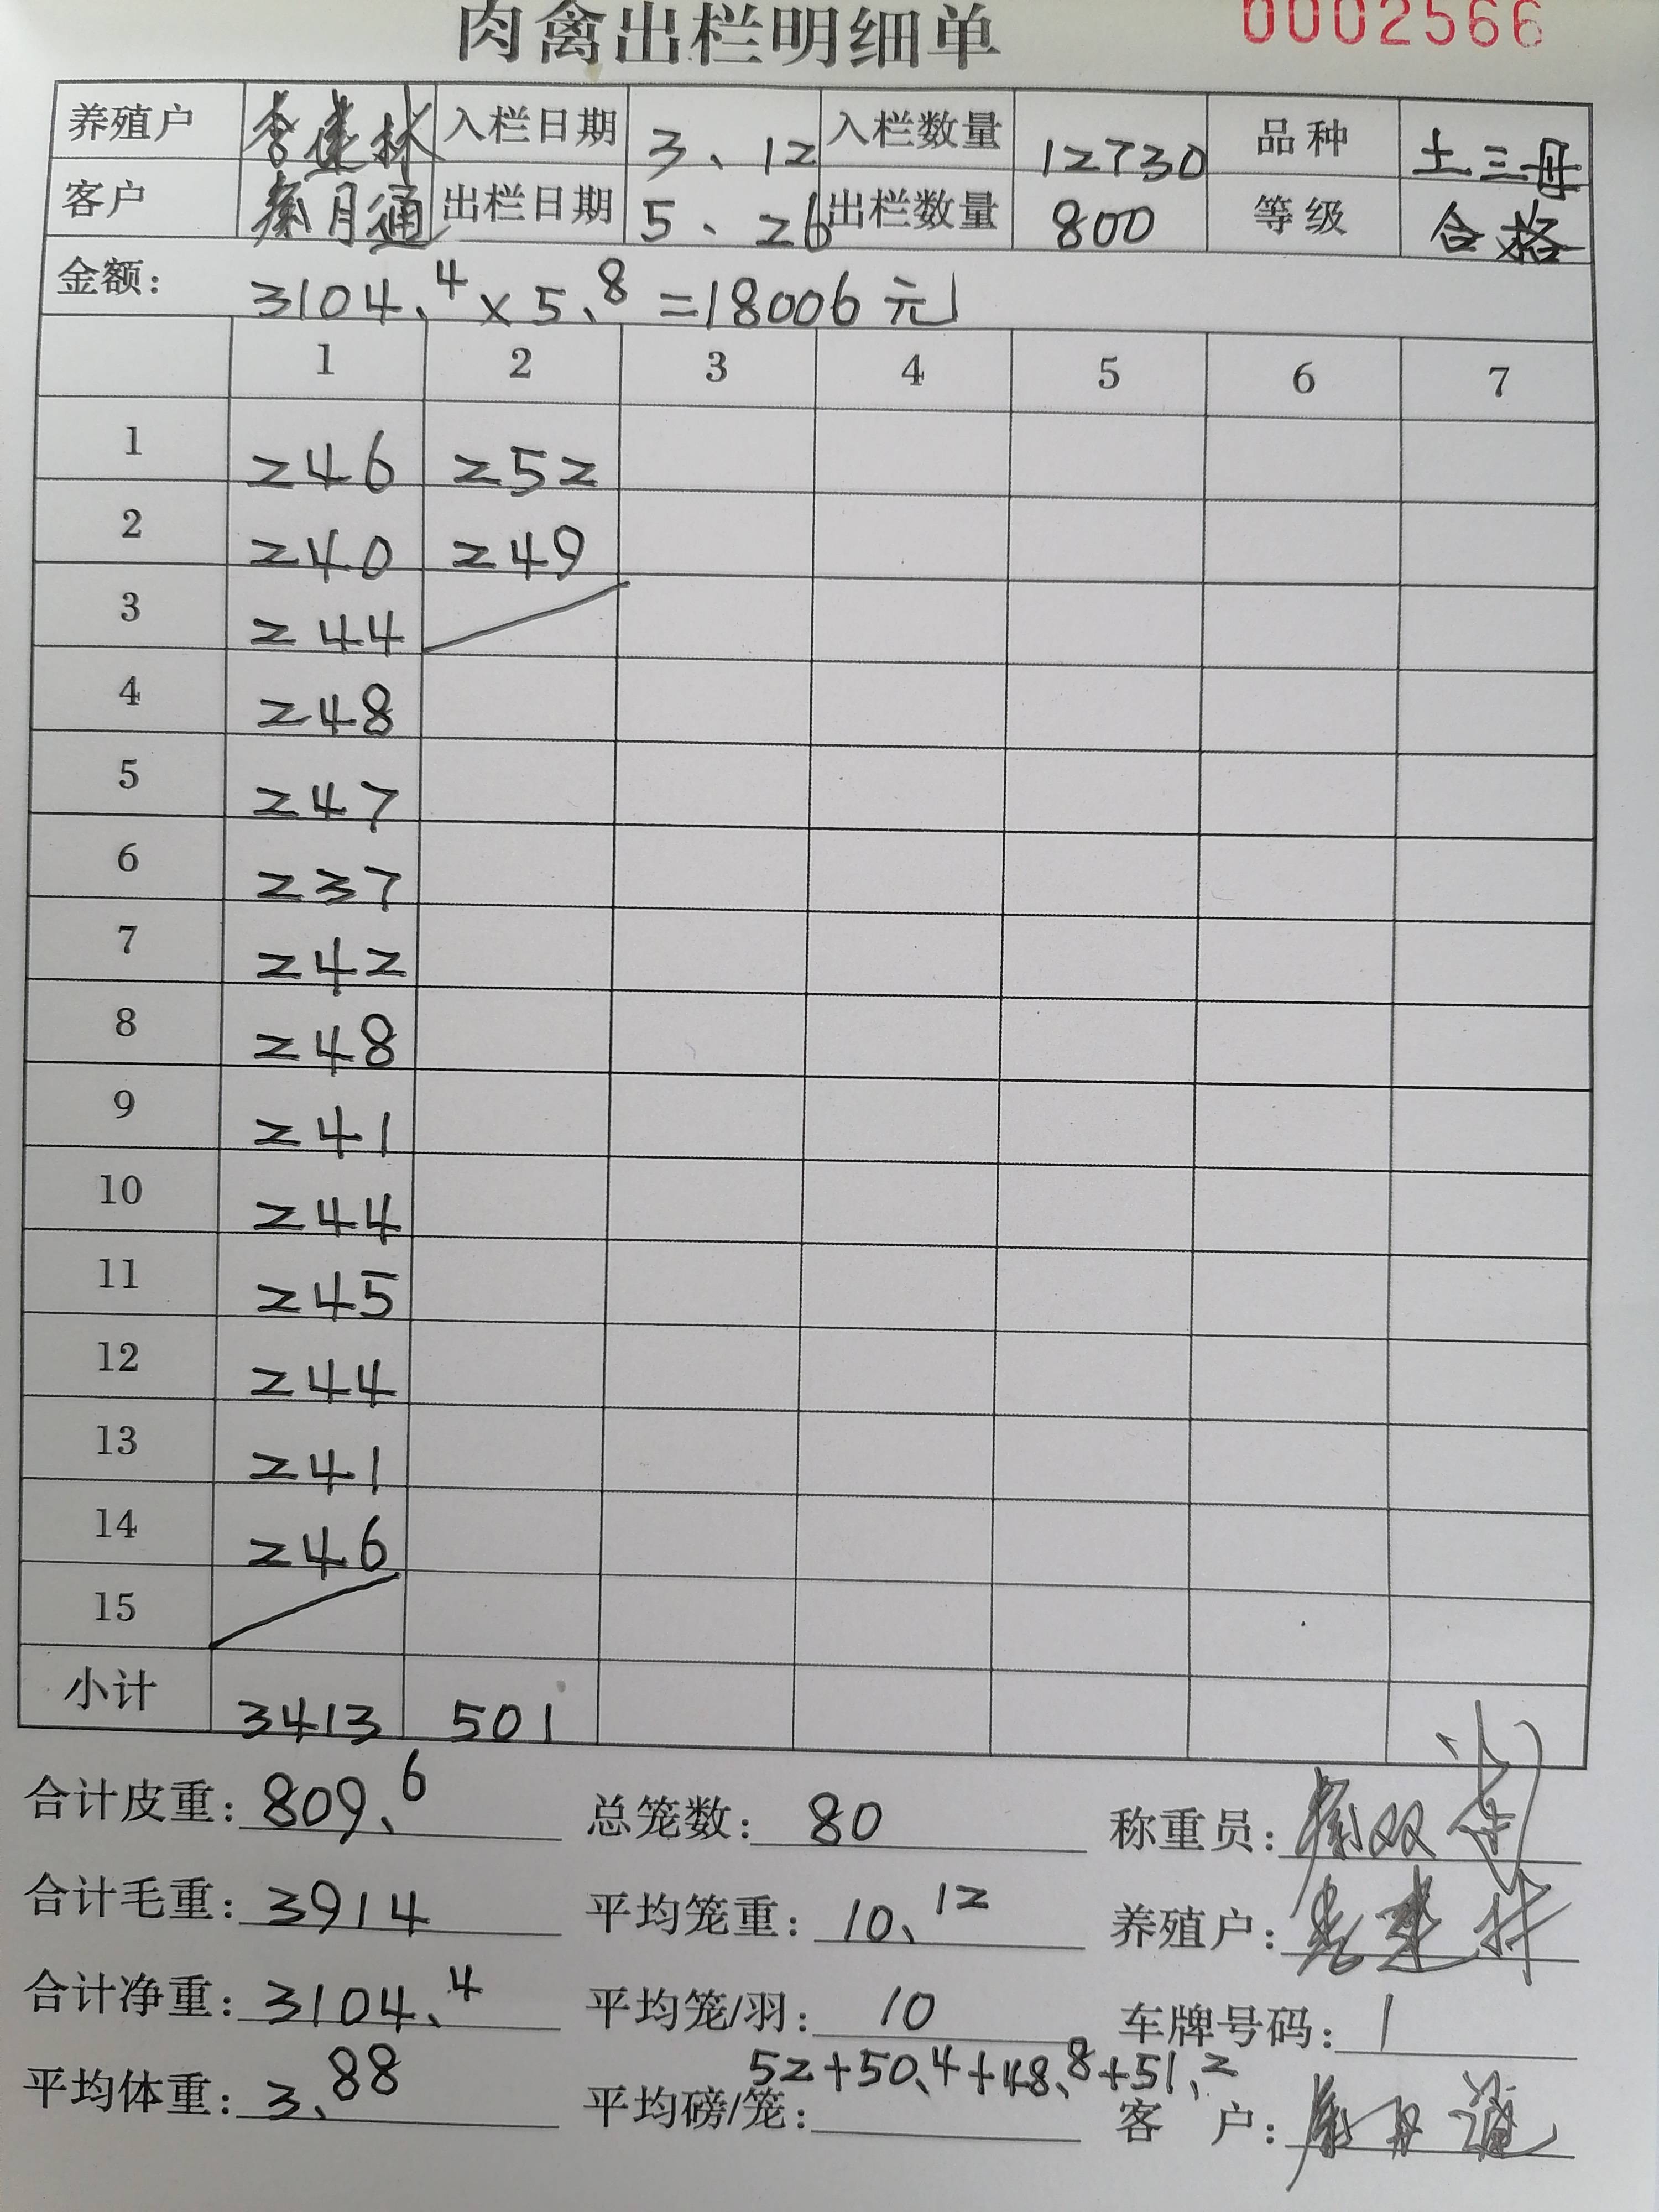 肉禽出栏明细单 0002566
养殖户 李建林 入栏日期 3、12 入栏数量 12730 品种 土三母
客户 秦月通 出栏日期 5、26 出栏数量 800 等级 合格
金额： 3104.4×5.8=18006元
1 2 3 4 5 6 7
1 246 252
2 240 249
3 244
4 248
5 247
6 237
7 242
8 248
9 241
10 244
11 245
12 244
13 241
14 246
15
小计 3413 501
合计皮重：809.6 总笼数：80 称重员：
合计毛重：3914 平均笼重：10.12 养殖户：
合计净重：3104.4 平均笼/羽：10 车牌号码：1
52+50.4+48.8+51.2
平均体重：3.88 平均磅/笼： 客 户：